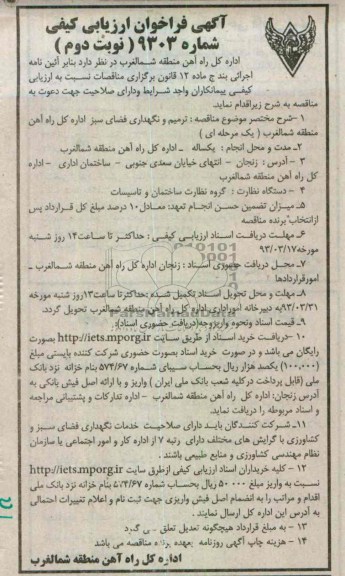 آگهی فراخوان ارزیابی کیفی
شماره ۹۳۰۳ ( نوبت دوم )
اداره کل راه آهن منطقه شمالغرب در نظر دارد بنابر آئین نامه
اجرائی بند ج ماده ۱۲ قانون برگزاری مناقصات نسبت به ارزیابی
کیفی پیمانکاران واجد شرایط ودارای صلاحیت جهت دعوت به
مناقصه به شرح زیراقدام نماید.
۱ -شرح مختصر موضوع مناقصه : ترمیم و نگهداری فضای سبز اداره کل راه آهن
منطقه شمالغرب ( یک مرحله ای )
۲- مدت و محل انجام : یکساله - اداره کل راه آهن منطقه شمالغرب
۳ - آدرس : زنجان - انتهای خیابان سعدی جنوبی - ساختمان اداری - اداره
کل راه آهن منطقه شمالغرب
۴ - دستگاه نظارت : گروه نظارت ساختمان و تاسیسات
۵- میزان تضمین حسن انجام تعهد: معادل ۱۰ درصد مبلغ کل قرارداد پس
ازانتخاب برنده مناقصه
۶- مهلت دریافت اسناد ارزیابی کیفی : حداکثر تا ساعت ۱۴ روز شنبه
مورخه ۹۳/۰۳/۱۷
۷- محل دریافت حضوری اسناد : زنجان اداره کل راه آهن منطقه شمالغرب -
امورقراردادها
۸- مهلت و محل تحویل اسناد تکمیل شده :حداکثرتا ساعت۱۳روز شنبه مورخه
۹۳/۰۳/۳۱به دبیرخانه امور اداری اداره کل راه آهن منطقه شمالغرب تحویل گردد.
۹- قیمت اسناد ونحوه واریزوجه(دریافت حضوری اسناد):
۱۰ -دریافت خرید اسناد از طریق سایت http://iets.mporg.ir بصورت
رایگان می باشد و در صورت خرید اسناد بصورت حضوری شرکت کننده بایستی مبلغ
(۱۰۰,۰۰۰) یکصد هزار ریال بحساب سیبای شماره ۵۷۴/۶۷ بنام خزانه نزد بانک
ملی (قابل پرداخت درکلیه شعب بانک ملی ایران ) واریز و با ارائه اصل فیش بانکی به
آدرس زنجان: اداره کل راه آهن منطقه شمالغرب - اداره تدارکات و پشتیبانی مراجعه
و اسناد مربوطه را دریافت نماید.
۱۱- شرکت کنندگان باید دارای صلاحیت خدمات نگهداری فضای سبز و
کشاورزی با گرایش های مختلف دارای رتبه ۷ از اداره کار و امور اجتماعی یا سازمان
نظام مهندسی کشاورزی و منابع طبیعی باشند .
۱۲ - کلیه خریداران اسناد ارزیابی کیفی ازطرق سایت http://iets.mporg.ir
نسبت به واریز مبلغ ۵۰۰۰۰ ریال بحساب شماره ۵۷۴/۶۷ بنام خزانه نزد بانک ملی
اقدام و مراتب را به انضمام اصل فیش واریزی جهت ثبت نام و اعلام تغییرات احتمالی
به آدرس این اداره کل ارسال نمایند .
۱۳ - به مبلغ قرارداد هیچگونه تعدیل تعلق می گردد
۱۴ - هزینه چاپ آگهی روزنامه بعهده برنده مناقصه می باشد
اداره کل راه آهن منطقه شمالغرب